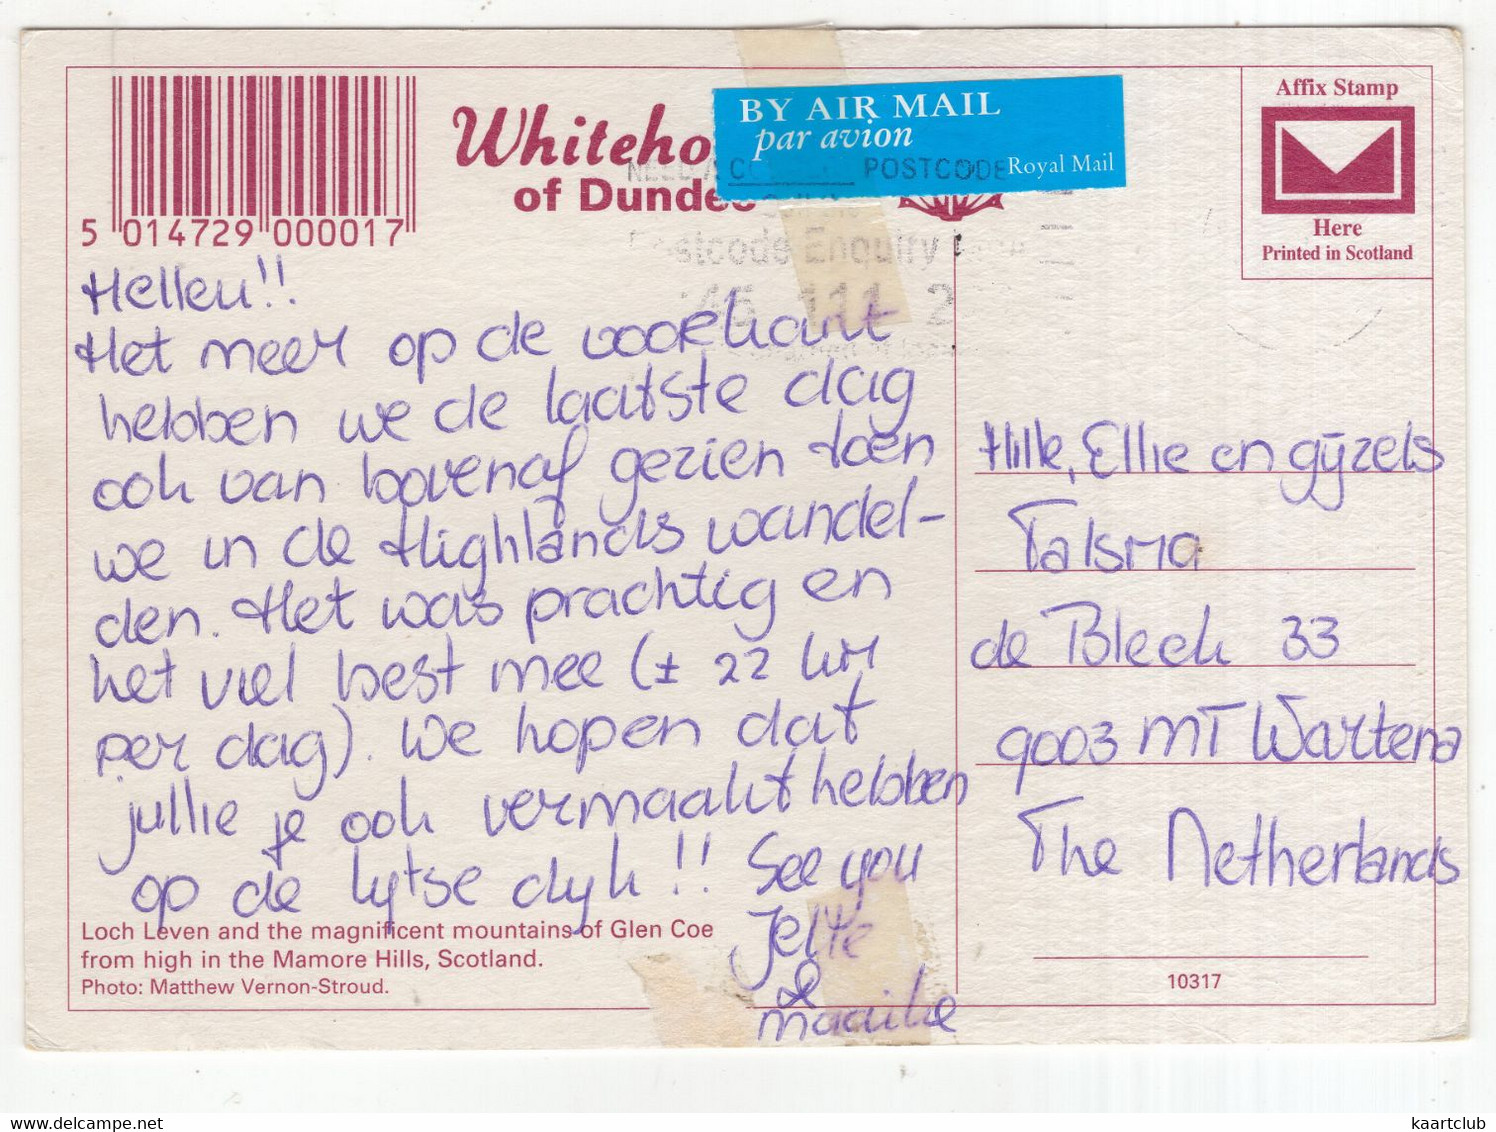 5 014729 000017
Whiteho
of Dundee
BY AIR MAIL
par avion
Royal Mail
POSTCODE
Postcode Enquiry
Affix Stamp
Here
Printed in Scotland
Helleu!!
Het meer op de voorkant
hebben we de laatste dag
ook van bovenaf gezien toen
we in de Highlands wandel-
den. Het was prachtig en
het viel best mee (± 22 km
per dag). We hopen dat
jullie je ook vermaakt hebben
op de lytse dyk!! See you
Jelte
&
Maaike
Loch Leven and the magnificent mountains of Glen Coe
from high in the Mamore Hills, Scotland.
Photo: Matthew Vernon-Stroud.
Hille, Ellie en Gijzels
Talsma
de Blech 33
9003 MT Wartena
The Netherlands
10317
delcampe.net
kaartclub